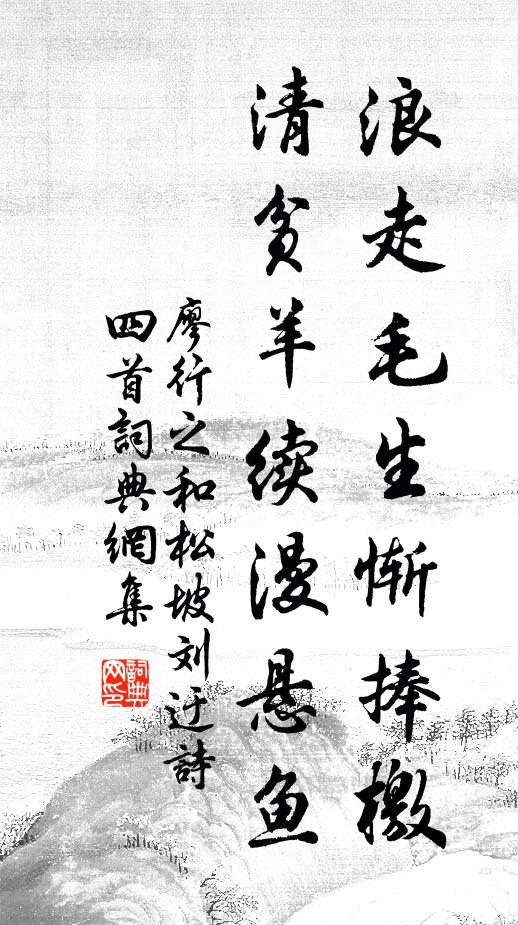 浪走毛生惭捧檄
清贫羊续漫悬鱼
廖行之和松坡刘迂詩
四首詞典網集
詞典网印